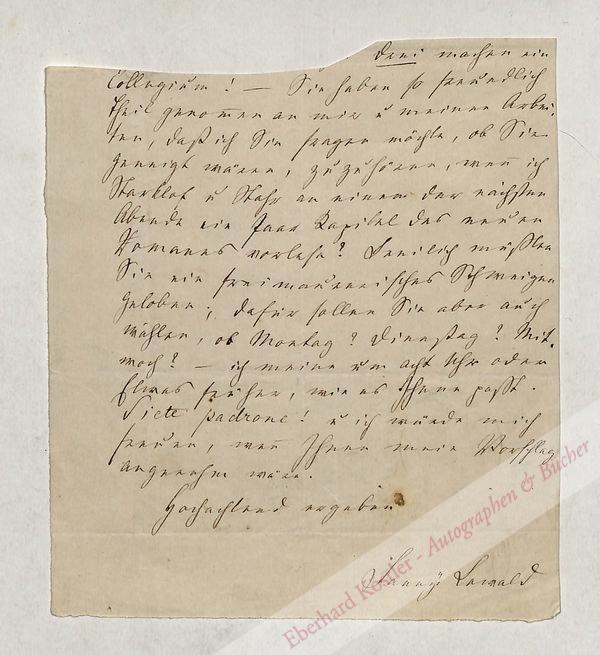 Drei machen ein
Collegium! — Sie haben so freundlich
Theil genommen an mir u meinen Arbei-
ten, daß ich Sie fragen möchte, ob Sie
geneigt wären, zuzuhören, wenn ich
Starklof u Stahr an einem der nächsten
Abende ein Paar Kapitel des neuen
Romanes vorlese? Freilich müßten
Sie ein freimaurerisches Schweigen
geloben; dafür sollen Sie aber auch
wählen, ob Montag? Dienstag? Mit-
woch? — ich meine um acht Uhr oder
Etwas früher, wie es Ihnen paßt.
Siete padrone! u ich würde mich
freuen, wenn Ihnen mein Vorschlag
angenehm wäre.
Hochachtend ergeben
Fanny Lewald
Eberhard Köstler - Autographen & Bücher